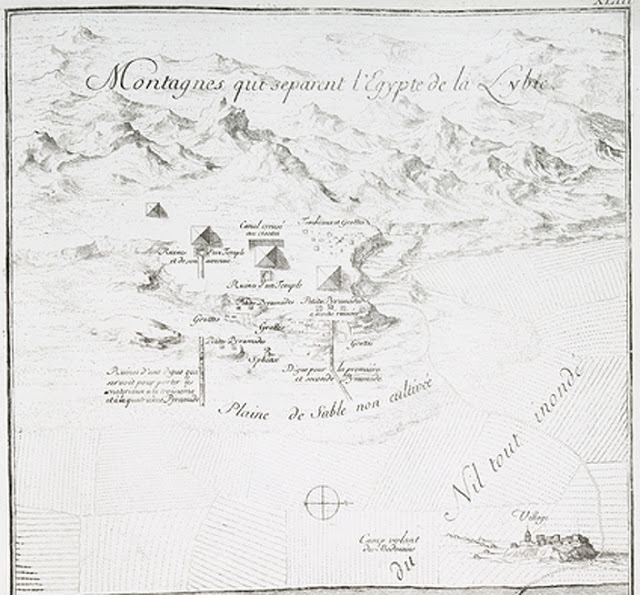 XLIII
Montagnes qui separent l'Egypte de la Lybie.
Tombeaux et Grottes
Canal creusé
au ciseau
Ruines d'un Temple
et de son
Ruine d'un Temple
Petites Pyramides
Petites Pyramides
Grottes
Grottes
Grottes
Petites Pyramides
Sphinx
Ruines d'une Digue qui
servoit pour porter les
materiaux a la troisieme
et à la quatrieme Pyramide
Digue pour la premiere
et seconde Pyramide
Plaine de Sable non cultivée
Nil tout inondé
Village
Camp volant
des Bedouins
du